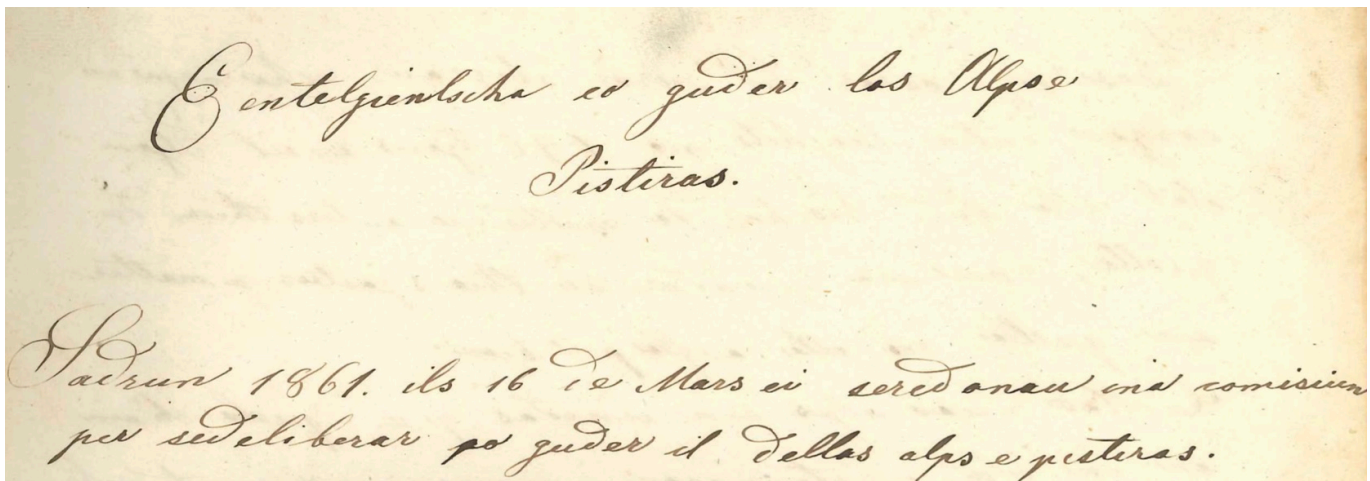 Entelgientscha co guder las Alps e
Pistiras.
Sadrun 1861. ils 16 de Mars ei seredonau ina comisiun
per sedeliberar po guder il dellas alps e pistiras.